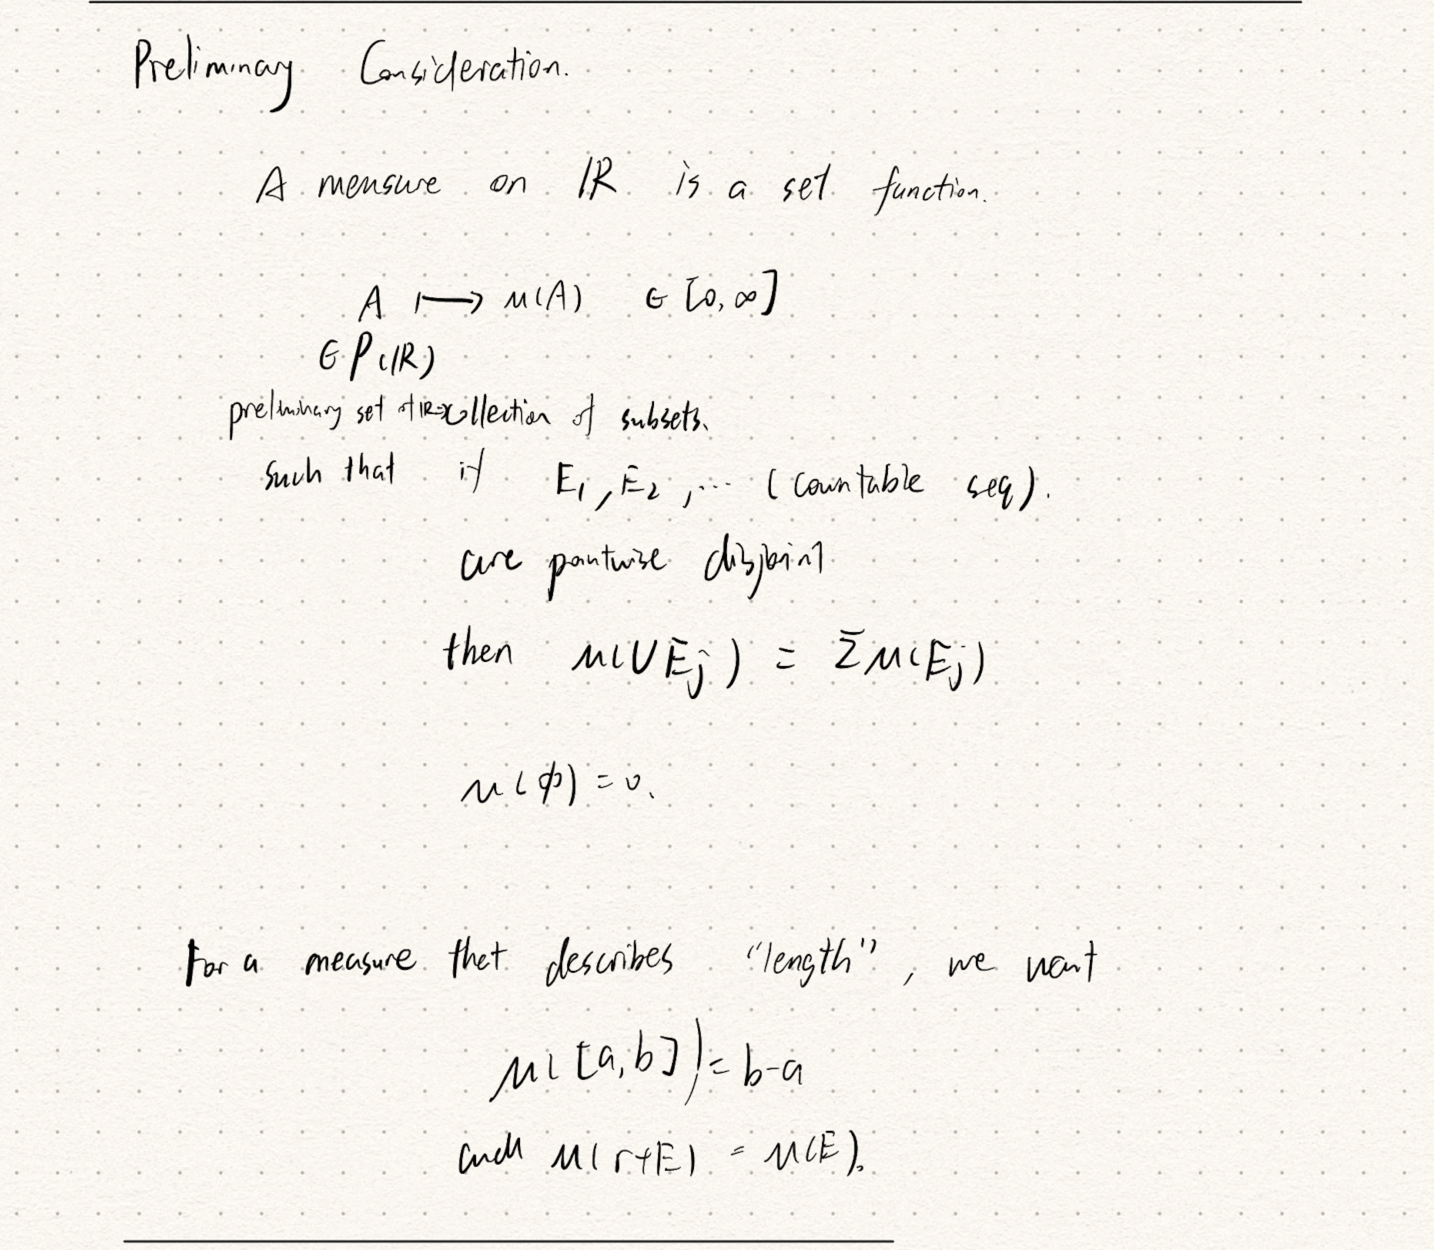 Preliminary Consideration.
A measure on ℝ is a set function.
A ⟼ μ(A) ∈ [0,∞]
∈ P(ℝ)
preliminary set of ℝ = collection of subsets.
such that if E₁, E₂, ... (countable seq).
are pointwise disjoint
then μ(∪Eⱼ) = Σμ(Eⱼ)
μ(∅) = 0.
For a measure thet describes "length", we want
μ([a,b]) = b-a
and μ(r+E) = μ(E).